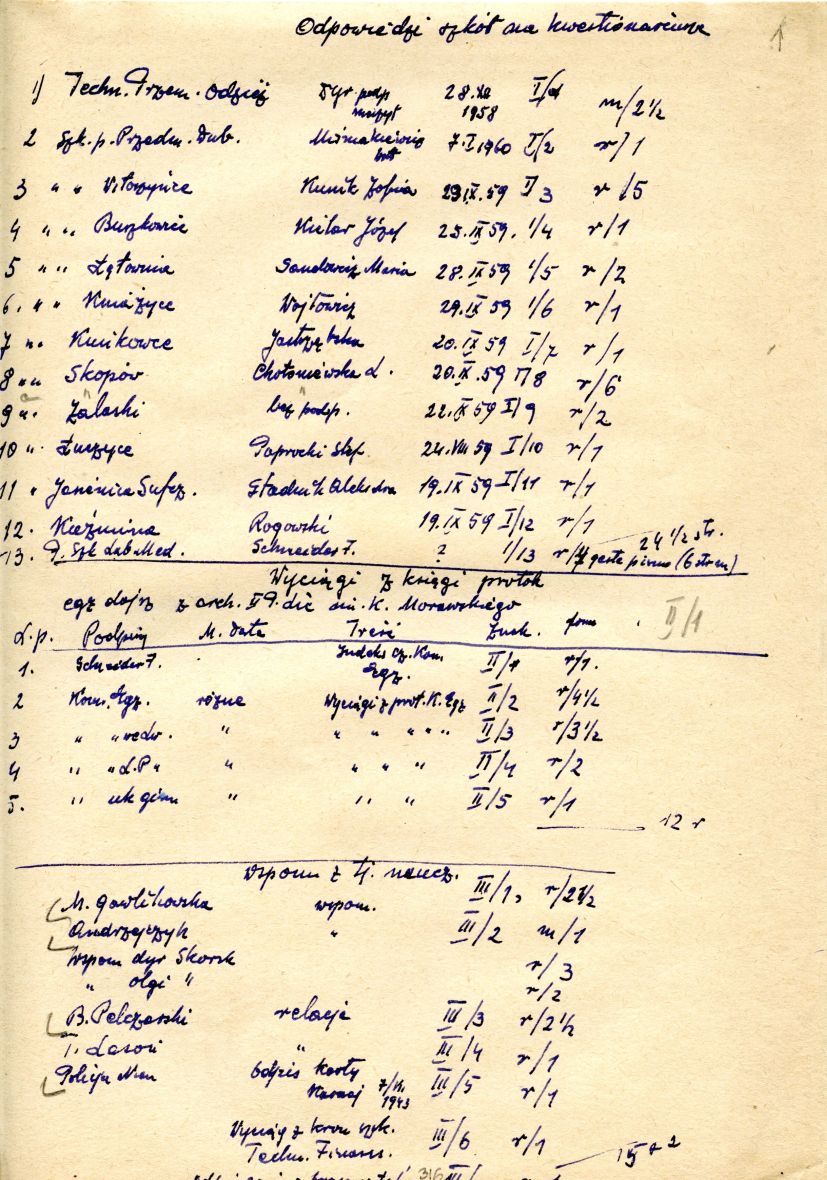 Odpowiedzi szkół na kwestionariusz 1
1) Techn. Przem. Odzież Dyr. podp. 28.XII 1958 I/1 m/2½
2 Szk. p. Przedm. Dub. 7.I.1960 I/2 r/1
3 " " Witoszyńce Kunik Zofia 29.IX.59 I/3 r/5
4 " " Buszkowice Kielar Józef 25.IX 59. I/4 r/1
5 " " Łętownia Sandowicz Maria 28.IX 59 I/5 r/2
6. " " Kniażyce Wojtowicz 29.IX 59 I/6 r/1
7 " " Kuńkowce Jastrzębska 20.IX 59 I/7 r/1
8 " " Skopów Chołoniewska L. 20.IX.59 I/8 r/6
9 " " Zalaski bez podp. 22.IX 59 I/9 r/2
10 " Łuczyce Paprocki Stef 24.VIII 59 I/10 r/1
11 " Jasienica Sufcz. Stadnik Aleksdra 19.IX 59 I/11 r/1
12. Kuźmina Rogowski 19.IX 59 I/12 r/1 24 ½ str.
13. P. Szk Lab Med. Schneider F. ? I/13 r/4 gęste pismo (6 stron)
Wyciągi z księgi protok
egz dojrz z arch. II P. lic im. K. Morawskiego II/1
L.p. Podpisy M. Data Treść Znak. form
1. Schneider F. Indeks cz. Kom. Egz. II/1 r/1.
2 Kom. Egz. różne Wyciągi z prot. K. Egz II/2 r/4½
3 " " " " " " " II/3 r/3½
4 " " L.P " " " " " II/4 r/2
5. " ukgim " " " II/5 r/1
12 r
Wspom z T. naucz.
M. Gawlikowska wspom. III/1, r/2½
Andrzejczyk " III/2 m/1
Wspom dyr Skorsk r/3
" Olgi " r/2
B. Pelczarski relacje III/3 r/2½
T. Lasoń " III/4 r/1
Policja Niem Odpis karty Karnej 7/VI. 1943 III/5 r/1
Wyciąg z kron szk.
Techn. Finans. III/6 r/1
316